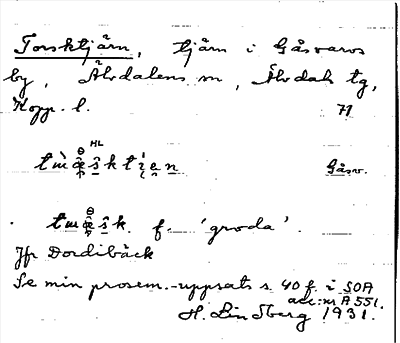 Torsktjärn, tjärn i Gåsvarvs
by, Älvdalens sn, Älvdals tg,
Kopp. l. 71
HL
Gåsv.
f. 'groda'.
Jfr Dordibäck
Se min prosem.-uppsats s. 40 f. i SOA
acc:nr A 551.
H. Lindberg 1931.